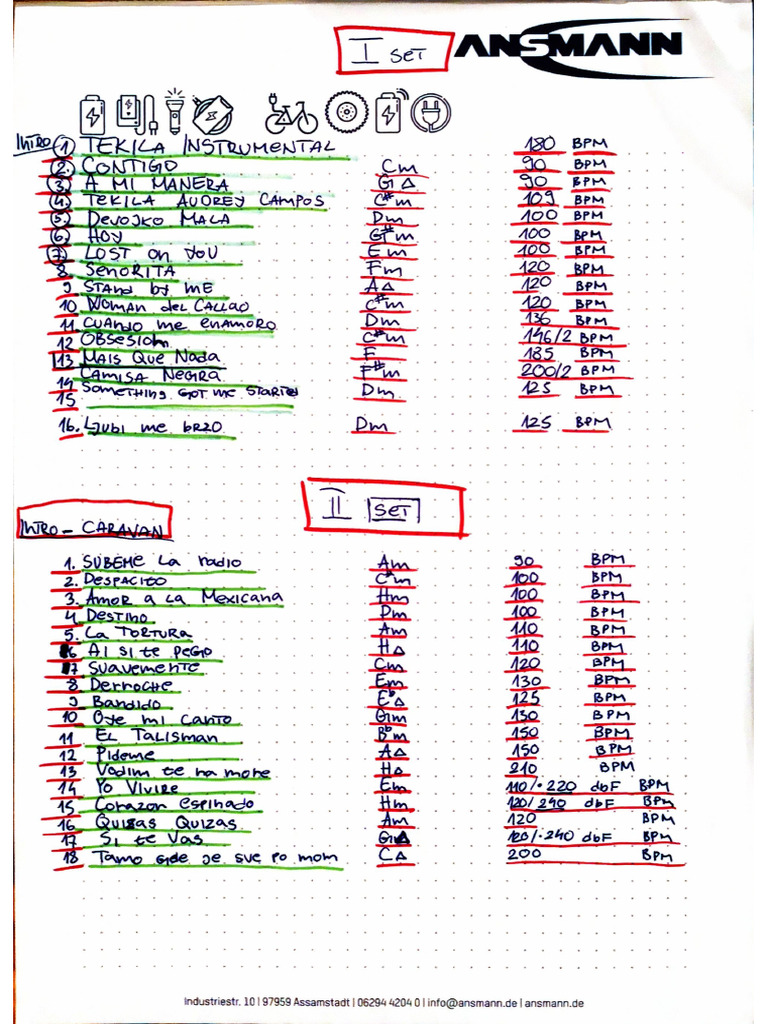 I SET ANSMANN
INTRO 1 TEKILA INSTRUMENTAL 180 BPM
2. CONTIGO Cm 90 BPM
3. A MI MANERA G△ 90 BPM
4. TEKILA AUDREY CAMPOS C#m 109 BPM
5. DEVOJKO MALA Dm 100 BPM
6. HOY G#m 100 BPM
7. LOST ON YOU Em 100 BPM
8. SEÑORITA Fm 120 BPM
9 STAND by ME A△ 120 BPM
10 WOMAN del CALLAO C#m 120 BPM
11. CUANDO me ENAMORO Dm 136 BPM
12 OBSESION C#m 146/2 BPM
13 MAIS QUE NADA F 185 BPM
14 CAMISA NEGRA F#m 200/2 BPM
15 SOMETHING GOT ME STARTED Dm 125 BPM
16. LJUBI me BRZO Dm 125 BPM
II SET
INTRO - CARAVAN
1. SUBEME LA RADIO Am 90 BPM
2. DESPACITO C#m 100 BPM
3. AMOR A LA MEXICANA Hm 100 BPM
4 DESTINO Dm 100 BPM
5. LA TORTURA Am 110 BPM
6 AI SI TE PEGO H△ 110 BPM
7 SUAVEMENTE Cm 120 BPM
8 DERROCHE Em 130 BPM
9 BANDIDO Eb△ 125 BPM
10 OYE MI CANTO Gm 130 BPM
11 EL TALISMAN Bbm 150 BPM
12 PIDEME A△ 150 BPM
13 VADIM TE NA MORE H△ 210 BPM
14 YO VIVIRE Em 110/.220 dbF BPM
15 CORAZON ESPINADO Hm 120/240 dbF BPM
16 QUIZAS QUIZAS Am 120 BPM
17 SI TE VAS 120/.240 dbF BPM
18 TAMO GDE JE SVE PO MOM C△ 200 BPM
Industriestr. 10 | 97959 Assamstadt | 06294 4204 0 | info@ansmann.de | ansmann.de